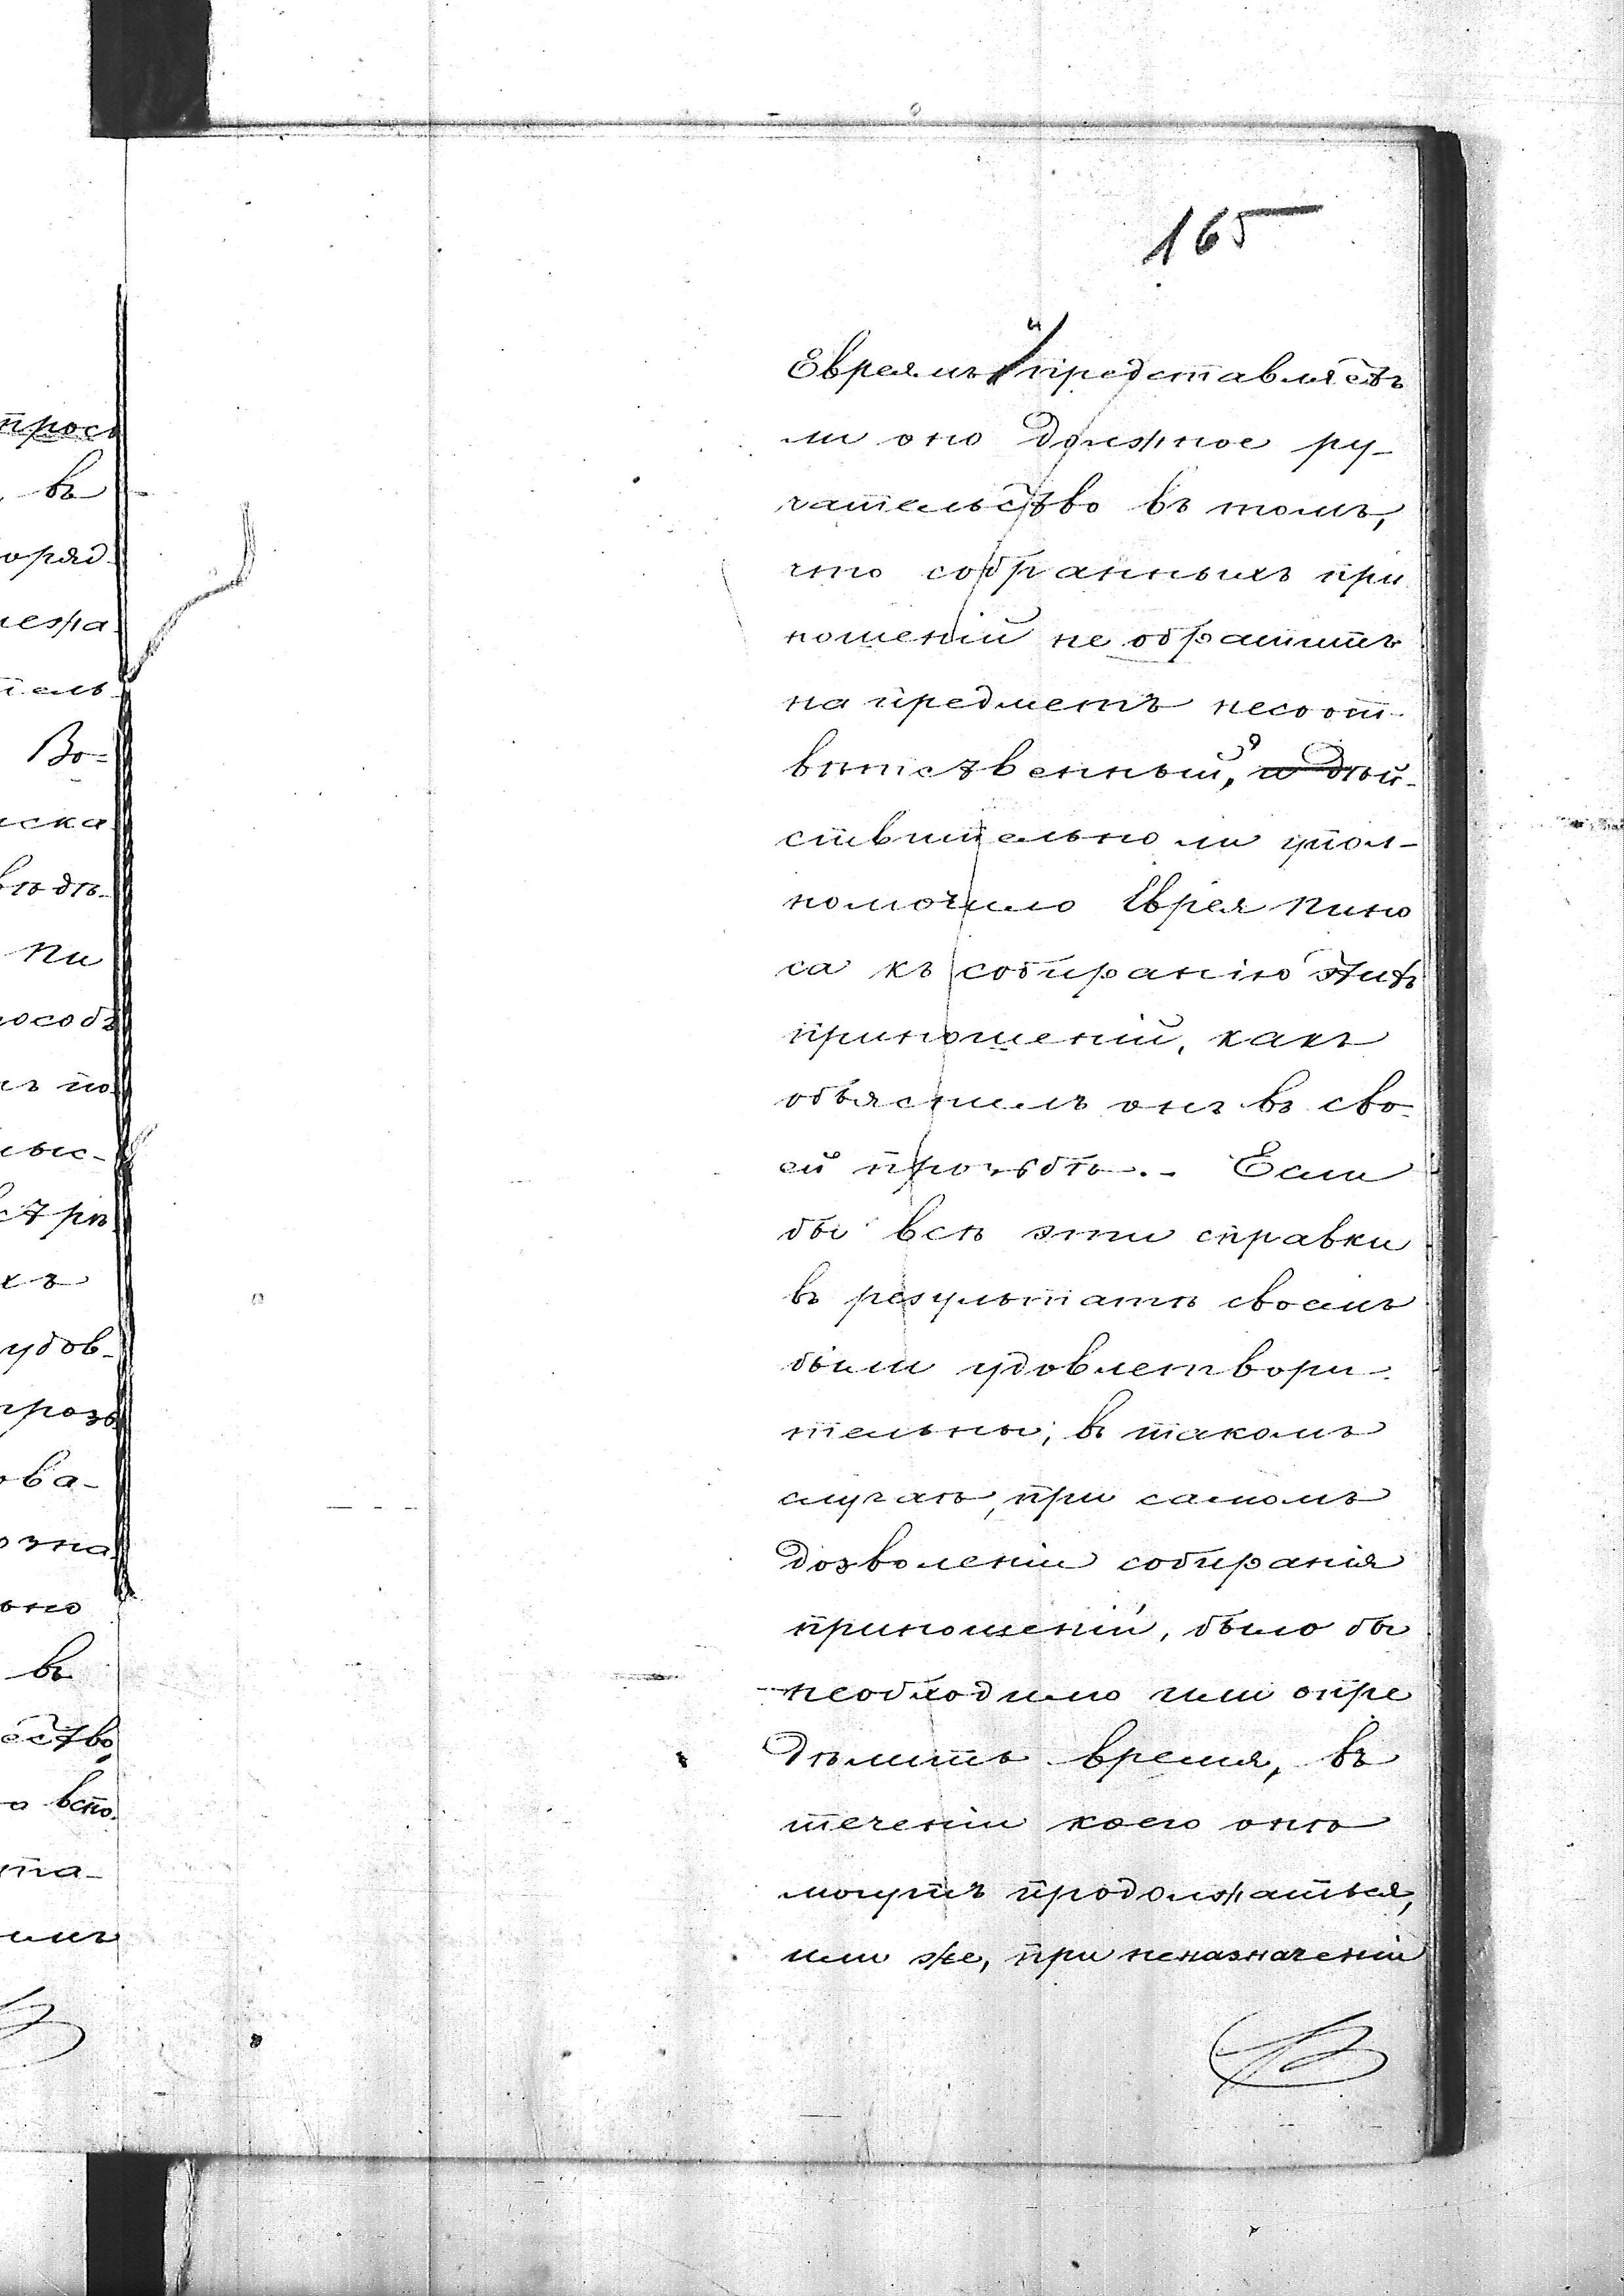 165
Евреямъ и представляетъ
ли оно должное ру-
чательство въ томъ,
что собранныхъ при
ношеній не обратитъ
на предметъ несоот-
вѣтственный, и дѣй-
ствительно ли упол-
номочило Еврея Пино
са къ собиранію этихъ
приношеній, какъ
объяснилъ онъ въ сво-
ей прозьбѣ.- Если
бы всѣ эти справки
въ результатѣ своемъ
были удовлетвори-
тельны; въ такомъ
случаѣ, при самомъ
дозволеніи собиранія
приношеній, было бы
необходимо или опре
дѣлить время, въ
теченіи коего онѣ
могутъ продолжаться,
или же, при неназначеніи
прось
въ
оряд
ежа
тель
Во=
иска
вѣдѣ-
Пи
пособ
ъ по
ыс-
стрѣ
хъ
удов-
прозь
ова-
озна
оно
въ
ество
а вспо
та-
имъ